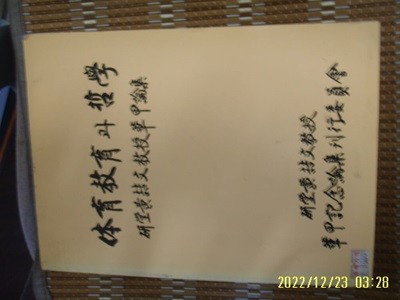 体育教育과 哲學
研堂黃詰文教授華甲論集
研堂黃詰文教授
華甲記念論集刊行委員會
2022/12/23 03:28